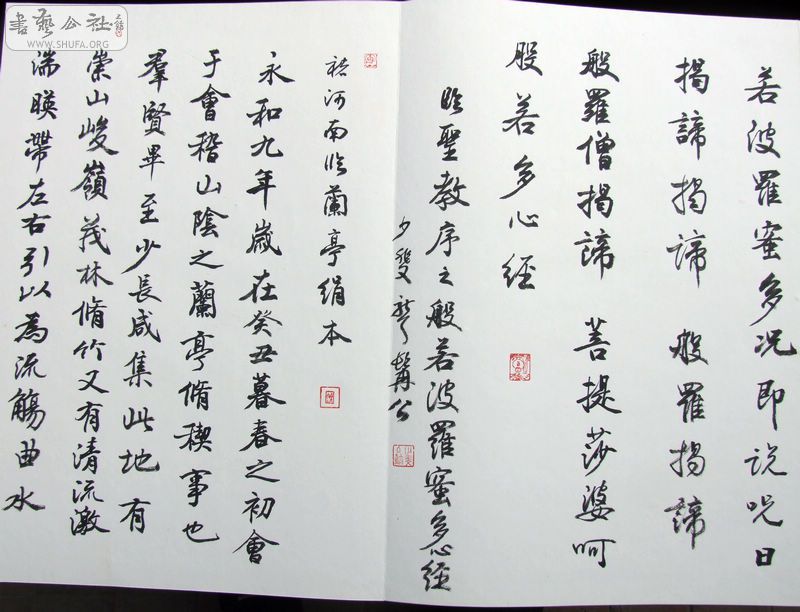 若波羅蜜多咒即说咒曰
揭諦揭諦 般羅揭諦
般羅僧揭諦 菩提莎婆呵
般若多心經
临聖教序之般若波羅蜜多心經
褚河南临蘭亭绢本
永和九年歲在癸丑暮春之初會
于會稽山陰之蘭亭脩稧事也
羣賢畢至少長咸集此地有
崇山峻嶺茂林脩竹又有清流激
湍暎帶左右引以為流觴曲水
書藝公社
WWW.SHUFA.ORG